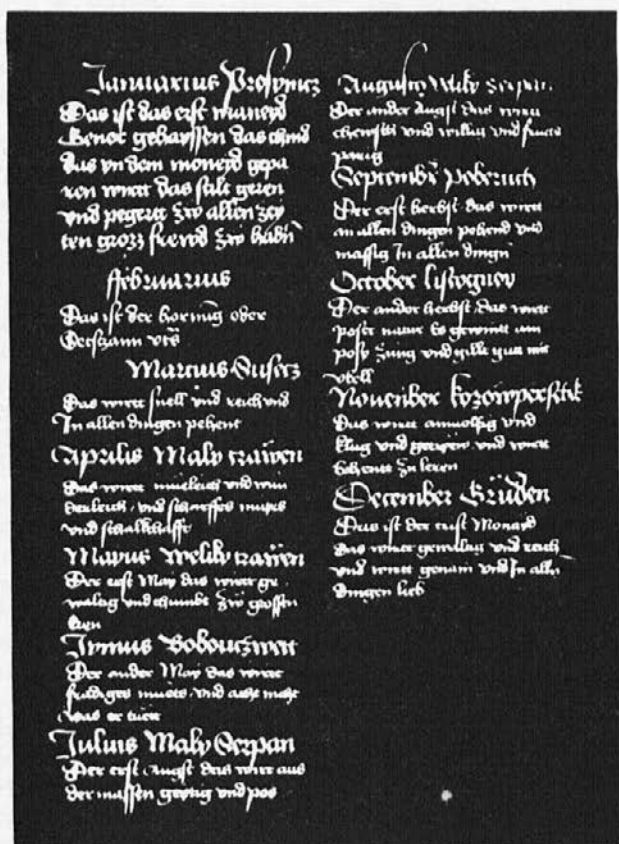 Januarius Prosymez
Das ist das erst maneyd
Genot gehayssen das chind
das yn dem moneyd gepa
ren wirtt das stilt geren
vnd pegertt zw allen zey
ten gross frewd zw habn
ffebruarius
Das ist der hornug oder
Martius Susetz
Das wirtt snell vnd reich vnd
In allen dingen pehent
Aprilis Maly trawen
Das wirtt
vnd scharffes muets
vnd schalkhafft
Mayus Weliky trawen
Der erst May das wirtt ge
waltig vnd chumbt zw grossen
eren
Junius Bobouczwett
Der ander May das wirtt
muets vnd acht nicht
was er tuett
Julius Maly Serpan
Der erst Augst das wirt aus
der massen geytig vnd pos
Augustus Weliky Serpan
Der ander Augst das wirtt
vnd willig vnd
Septembr Poberuch
Der erst herbst das wirtt
in allen dingen pehend vnd
massig In allen dingn
October listognoy
Der ander herbst das wirtt
poser natur Es gewinnt ain
posy zung vnd
November
Das wirtt vnd
klug vnd vnd wirtt
behentt zu leren
December Grüden
Das ist der erst Monayd
das wirtt gewaltig vnd reich
vnd wirtt genam vnd In alln
dingen lieb